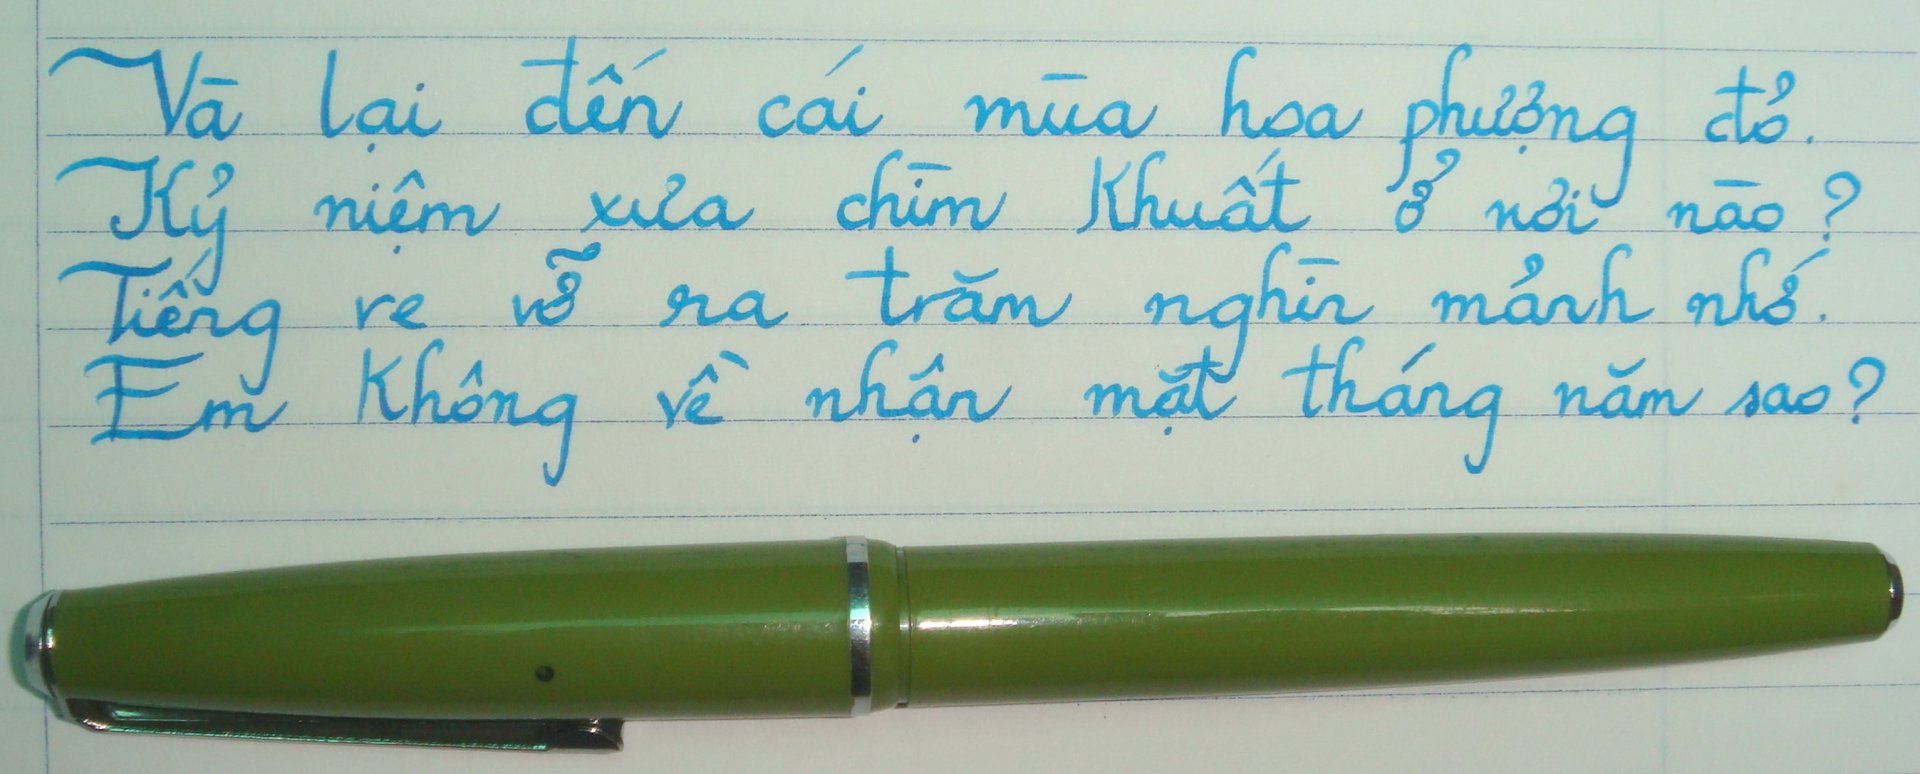 Và lại đến cái mùa hoa phượng đỏ.
Kỷ niệm xưa chìm Khuất ở nơi nào?
Tiếng ve vỡ ra trăm nghìn mảnh nhớ.
Em Không về nhận mặt tháng năm sao?